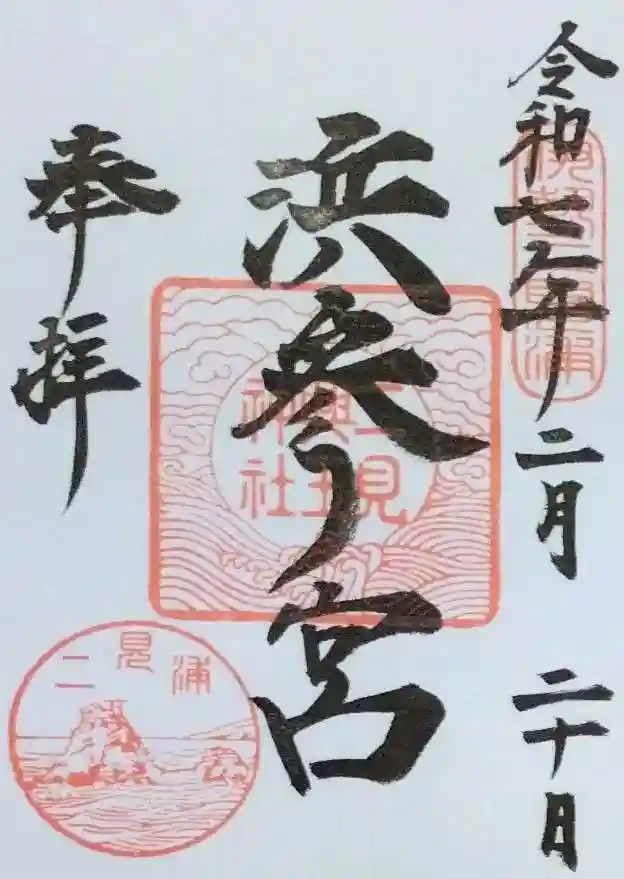 令和七年二月二十日
伊勢二見浦
浜参宮
二見
興玉
神社
奉拝
二見浦